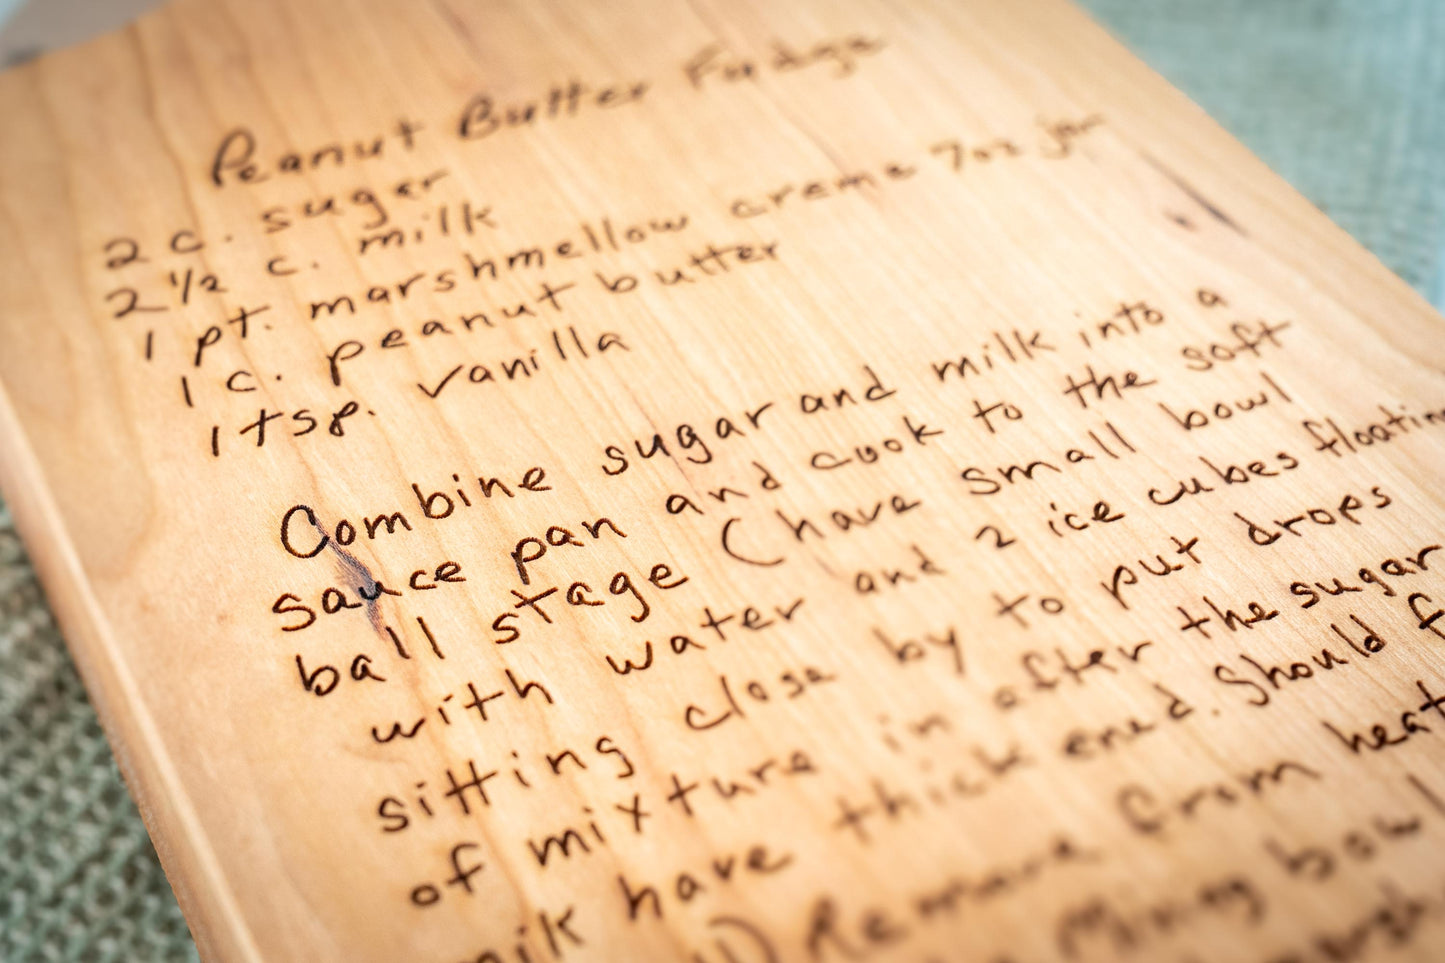 Peanut Butter Fudge
2 c. sugar
2 1/2 c. milk
1 pt. marshmellow creme 7oz jar
1 c. peanut butter
1 tsp. vanilla
Combine sugar and milk into a
sauce pan and cook to the soft
ball stage (have small bowl
with water and 2 ice cubes floating
sitting close by to put drops
of mixture in after the sugar
milk have thick ened. Should
Remove from heat
Mixing bowl